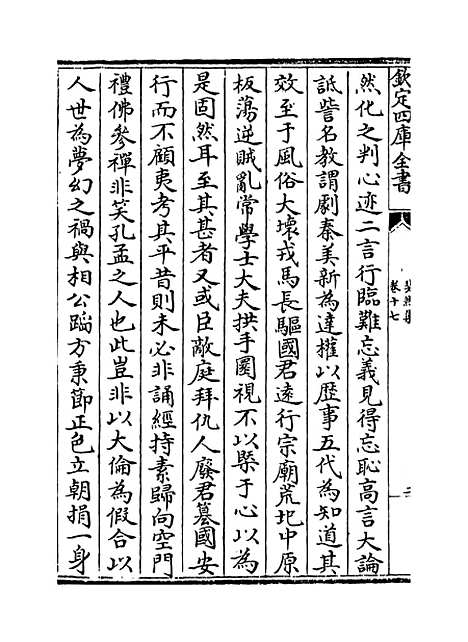 欽定四庫全書
卷十七
然化之判心迹二言行臨難忘義見得忘恥高言大論
詆訾名教謂劇秦美新為達權以歴事五代為知道其
效至于風俗大壞戎馬長驅國君逺行宗廟荒圯中原
板蕩逆賊亂常學士大夫拱手圜視不以槩于心以為
是固然耳至其甚者又或臣敵庭拜仇人廢君簒國安
行而不顧夷考其平昔則未必非誦經持素歸向空門
禮佛參禪非笑孔孟之人也此豈非以大倫為假合以
人世為夢幻之禍與相公蹈方秉節正色立朝捐一身